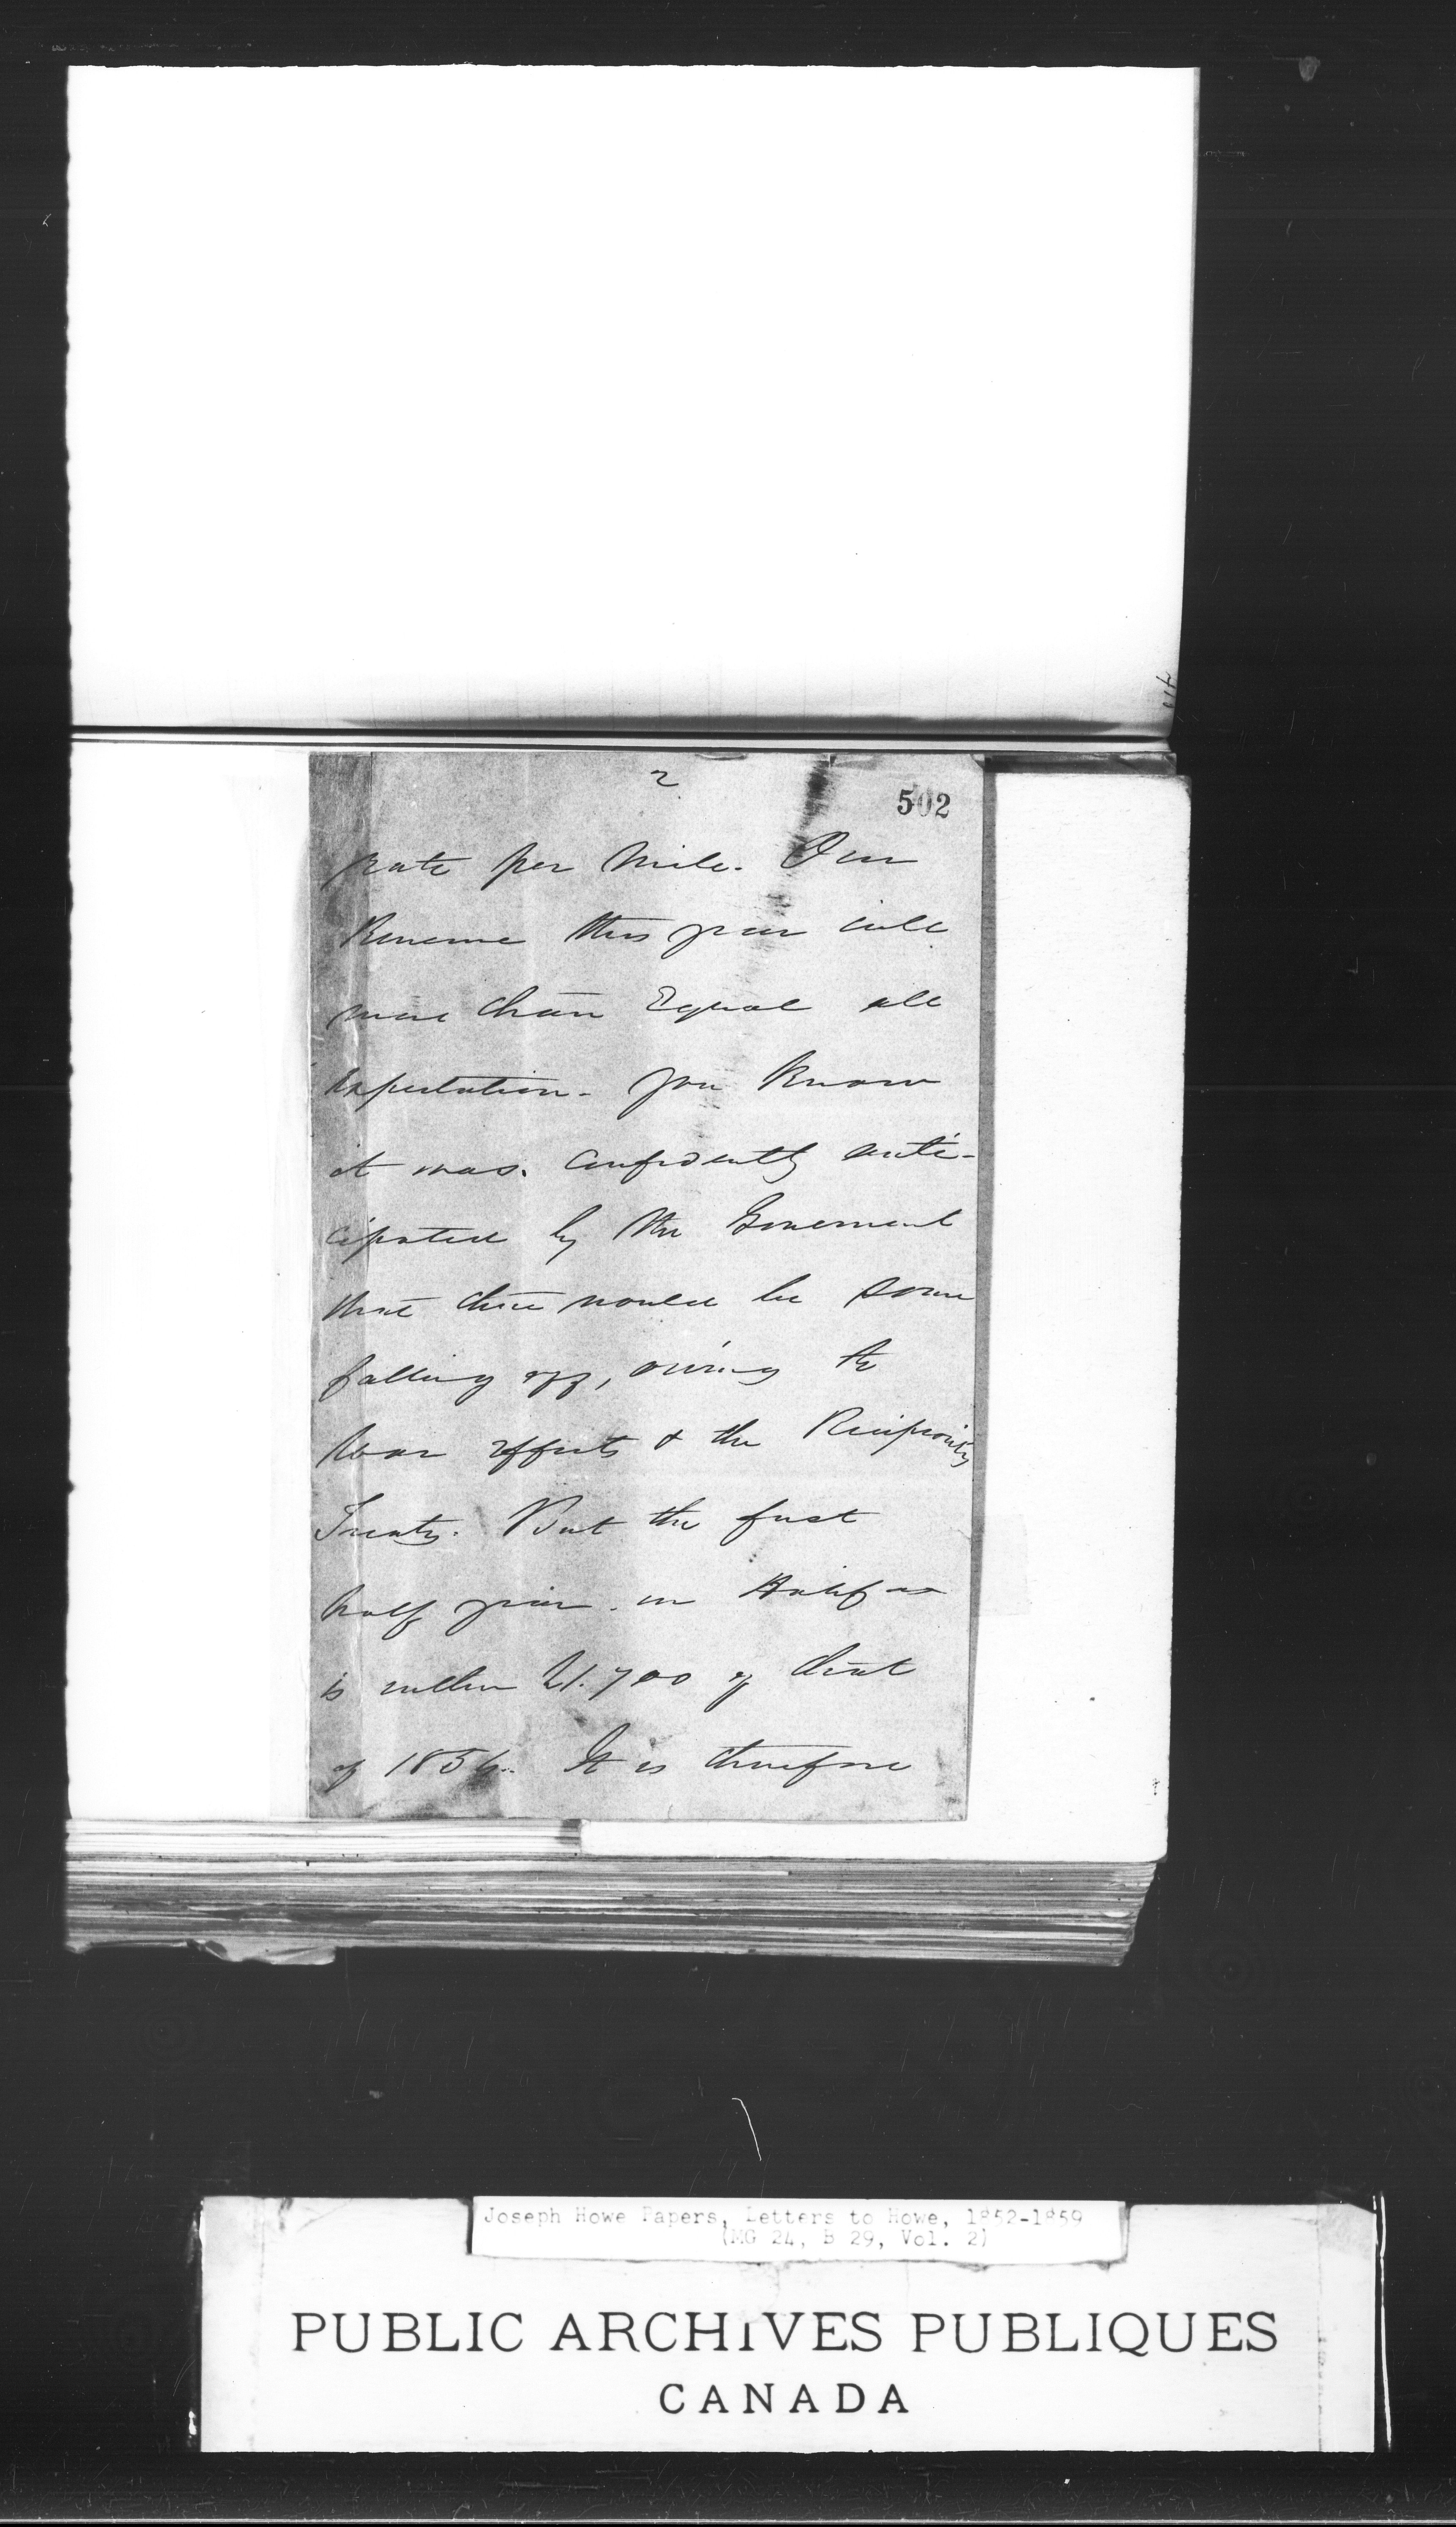 2
502
rate per Mile. Our
Revenue this year will
more than Equal all
Expectation. You Know
it was. Confidently anti-
cipated by the Government
that there would be some
falling off, owing to
War effects & the Reciprocity
Treaty. But the first
half year. in Halifax
is within £1.700 of that
of 1854. It is therefore
Joseph Howe Papers, Letters to Howe, 1852-1859
(MG 24, B 29, Vol. 2)
PUBLIC ARCHIVES PUBLIQUES
CANADA